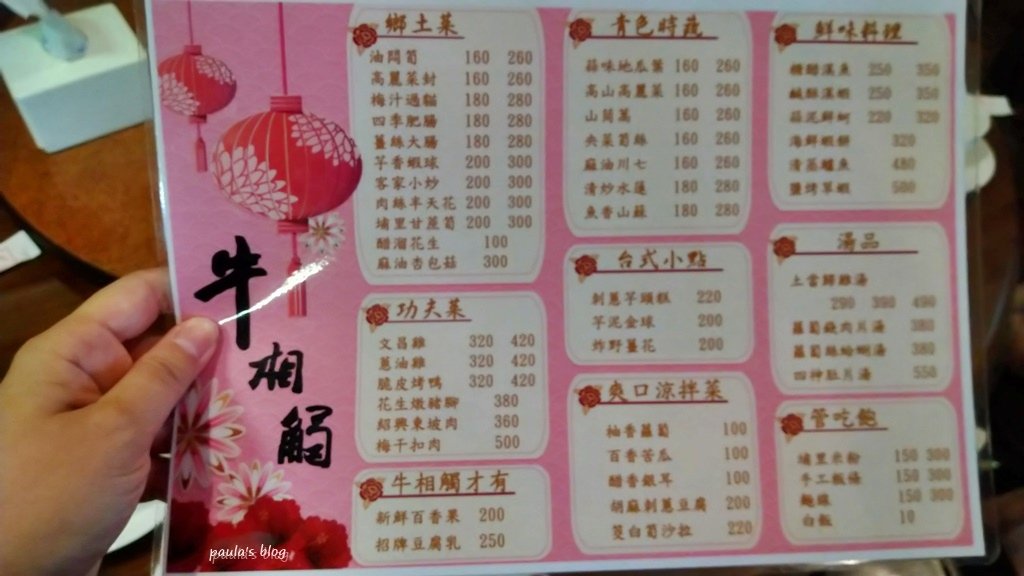 牛相觸
鄉土菜
油悶筍 160 260
高麗菜封 160 260
梅汁過貓 180 280
四季肥腸 180 280
薑絲大腸 180 280
芋香蝦球 200 300
客家小炒 200 300
肉絲半天花 200 300
埔里甘蔗筍 200 300
醋溜花生 100
麻油杏包菇 300
功夫菜
文昌雞 320 420
蔥油雞 320 420
脆皮烤鴨 320 420
花生燉豬腳 380
紹興東坡肉 360
梅干扣肉 500
牛相觸才有
新鮮百香果 200
招牌豆腐乳 250
青色時蔬
蒜味地瓜葉 160 260
高山高麗菜 160 260
山茼蒿 160 260
央菜筍絲 160 260
麻油川七 160 260
清炒水蓮 180 280
魚香山蘇 180 280
台式小點
刺蔥芋頭糕 220
芋泥金球 200
炸野薑花 200
爽口涼拌菜
柚香蘿蔔 100
百香苦瓜 100
醋香銀耳 100
胡麻刺蔥豆腐 200
筊白筍沙拉 220
鮮味料理
糖醋溪魚 250 350
鹹酥溪蝦 250 350
蒜泥鮮蚵 220 320
海鮮蝦餅 320
清蒸鱸魚 480
鹽烤草蝦 500
湯品
土當歸雞湯
290 390 490
蘿蔔燒肉片湯 380
蘿蔔絲蛤蜊湯 380
四神肚片湯 550
管吃飽
埔里米粉 150 300
手工粄條 150 300
麵線 150 300
白飯 10
paula's blog